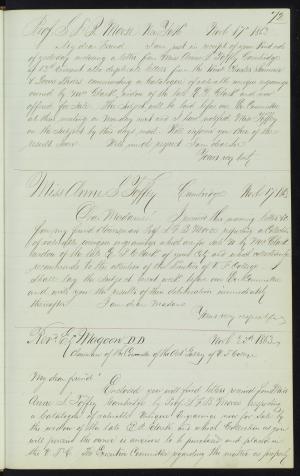 72
Prof. S. F. B. Morse New York Nov 17th 1863
My dear friend I am just in receipt of your kind note
of yesterday enclosing a letter from Miss Anne S. Toffey Cambridge
of 13th instant also duplicate letters from the
commending a Catalogue of valuable unique engravings
owned by Mrs Clark, widow of the late E. Clark and now
offered for sale. The subject will be laid before our Ex Committee
at their meeting on Monday next and I have notified Miss Toffey
on the subject by this days mail. Will inform you also of the
results soon. With much respect I am also Sir
Yours very truly
Miss Anne S. Toffey Cambridge Nov 17 1863
Dear Madame I received this morning letters &c
from my friend Prof. S F B Morse regarding a Collection
of valuable unique engravings which are for sale by Mrs Clark
widow of the late E. Clark of your City and which collection
recommends to the attention of the Trustees of V. F. College. I
shall lay the subject next week before our Ex Committee
and write you the results of their deliberation immediately
thereafter I am dear Madam
Yours very respectfully
Rev. E. L. Magoon D.D. Nov 23d 1863
Chairman of the Committee of the Art Gallery of V. F. College
My dear friend
Enclosed you will find letters received from Miss
Anne S. Toffey Cambridge by Prof. S F B Morse respecting
a Catalogue of valuable Antique Engravings now for sale by
the widow of the late Clark and which Collection as you
will perceive the owner is anxious to be purchased and placed in
the V. F. C. The Executive Committee regarding the matter as properly